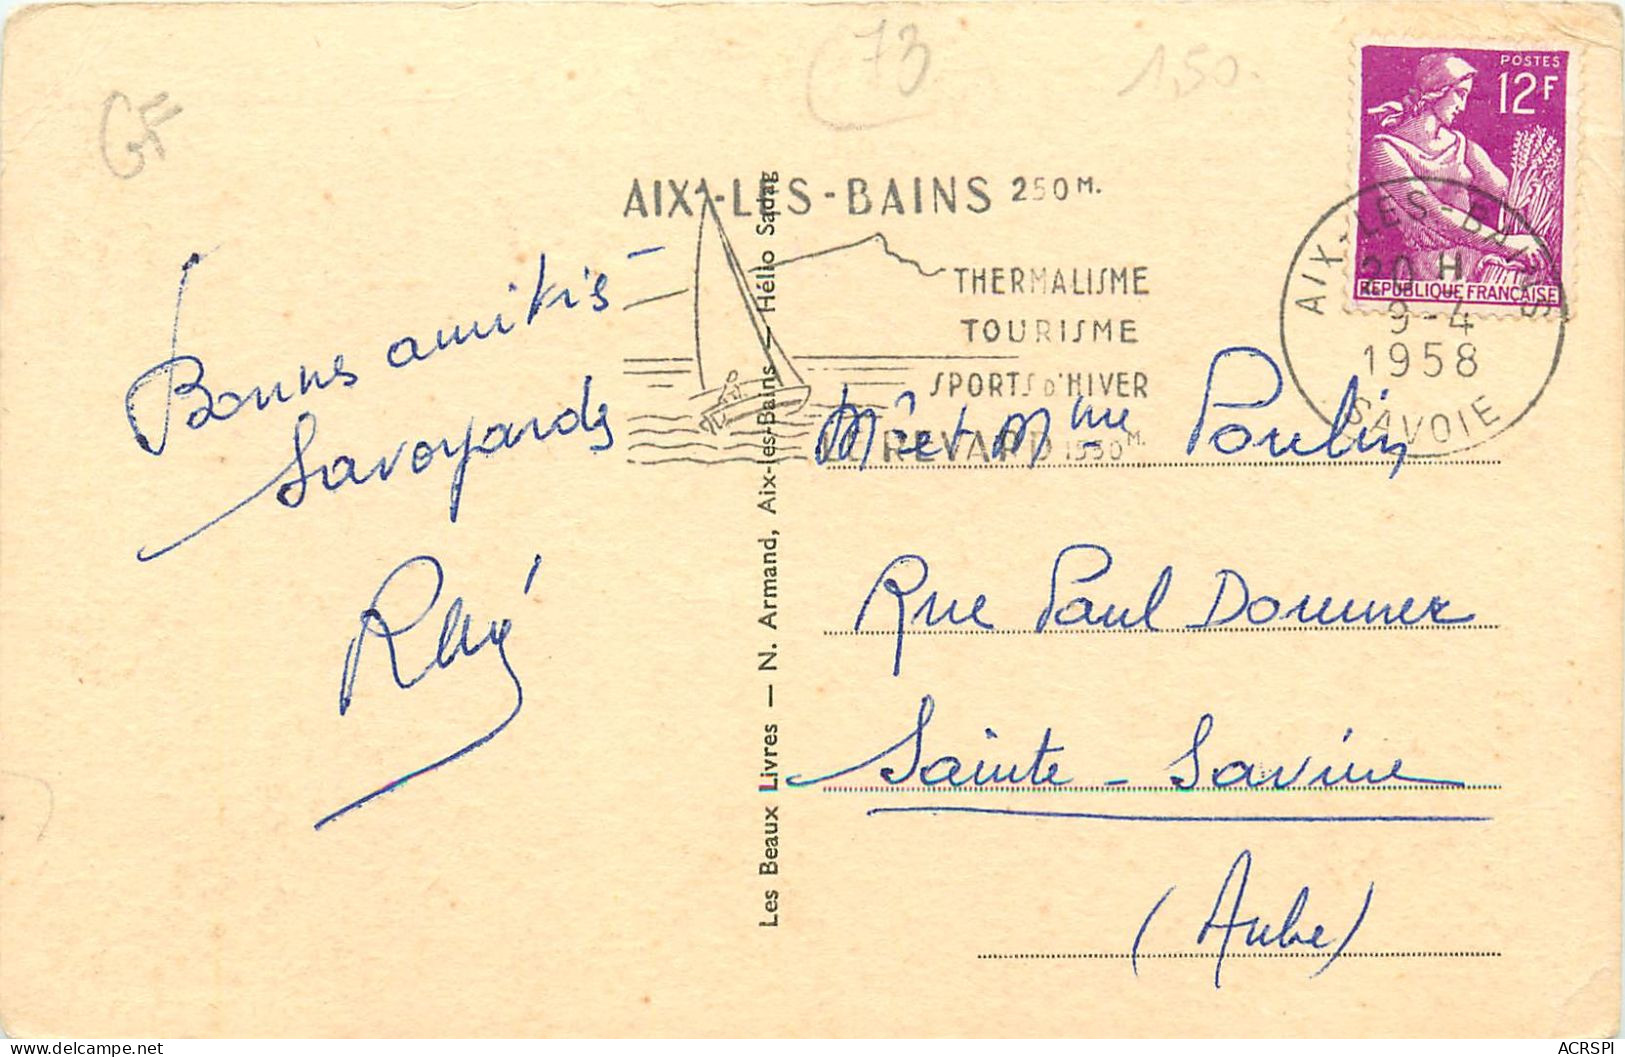 GF
73
1,50.
POSTES
12F
REPUBLIQUE FRANCAISE
AIX-LES-BAINS
20 H
9-4
1958
SAVOIE
AIX-LES-BAINS 250 M.
THERMALISME
TOURISME
SPORTS D'HIVER
LE REVARD 1550 M.
Bonnes amitiés
Savoyards
Les Beaux Livres — N. Armand, Aix-les-Bains — Hélio Sadag
Mr et Mme Poulin
Rue Paul Doumer
Sainte-Savine
(Aube)
ACRSPI